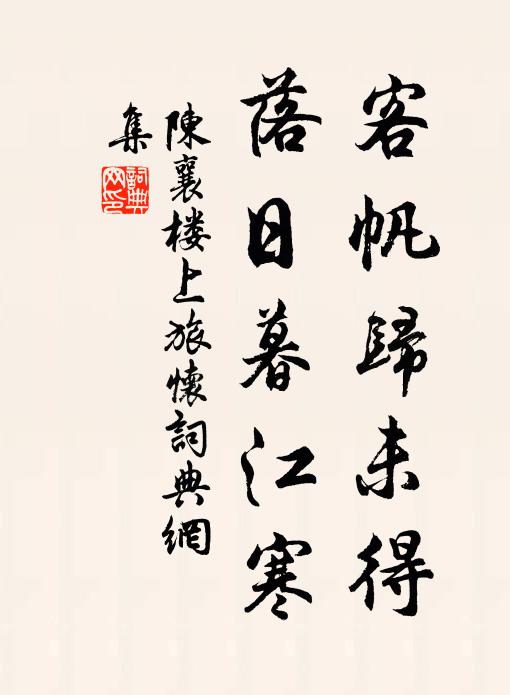 客帆歸未得
落日暮江寒
陳襄楼上旅懷詞典網
集
詞典
网印